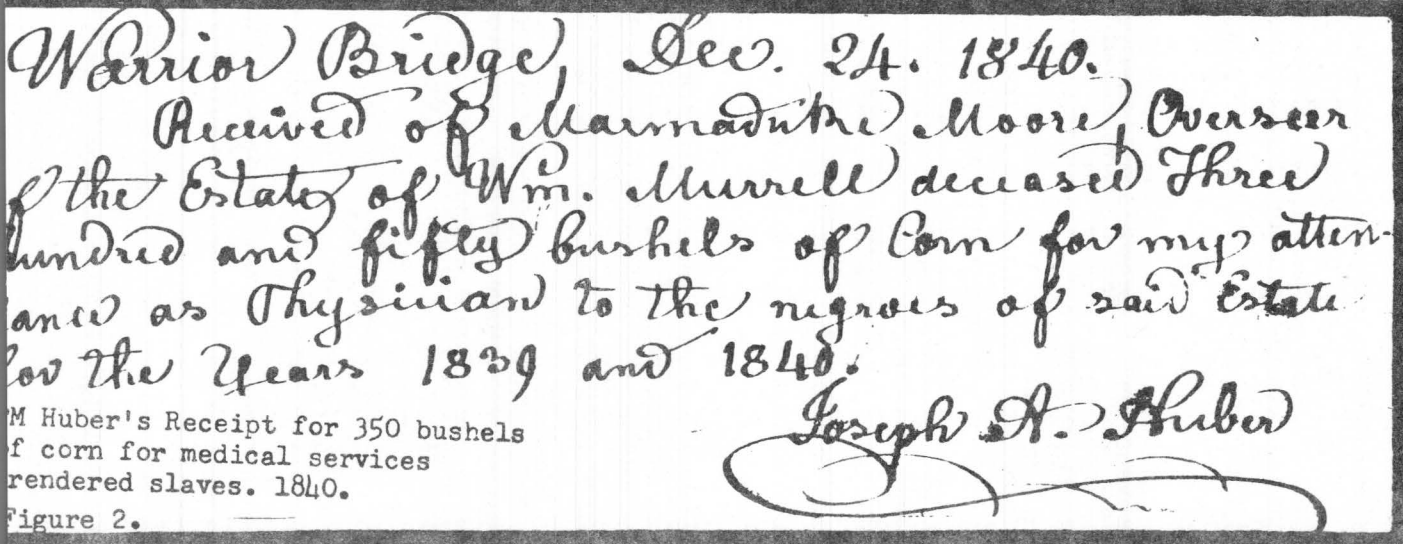 Warrior Bridge, Dec. 24. 1840.
Received of Marmaduke Moore, Overseer
f the Estate of Wm. Murrell deceased Three
undred and fifty bushels of Corn for my atten-
ance as Physician to the negroes of said Estate
for the Years 1839 and 1840.
Joseph A. Huber
PM Huber's Receipt for 350 bushels
of corn for medical services
rendered slaves. 1840.
Figure 2.